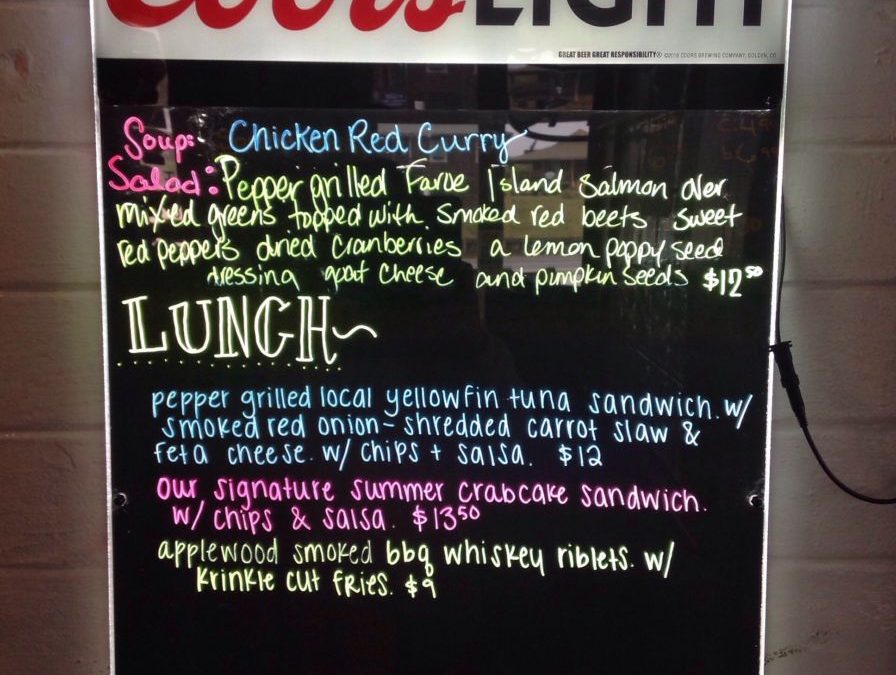 Coors LIGHT
GREAT BEER GREAT RESPONSIBILITY® ©2010 COORS BREWING COMPANY, GOLDEN, CO
Soup: Chicken Red Curry
Salad: Pepper grilled Faroe Island Salmon over
mixed greens topped with smoked red beets sweet
red peppers dried Cranberries a lemon poppy seed
dressing goat cheese and pumpkin seeds $12.50
LUNCH~
pepper grilled local yellowfin tuna sandwich. w/
smoked red onion- shredded carrot slaw &
feta cheese. w/ chips + salsa. $12
our signature summer crabcake sandwich.
w/ chips & salsa. $13.50
applewood smoked bbq whiskey riblets. w/
krinkle cut fries. $9